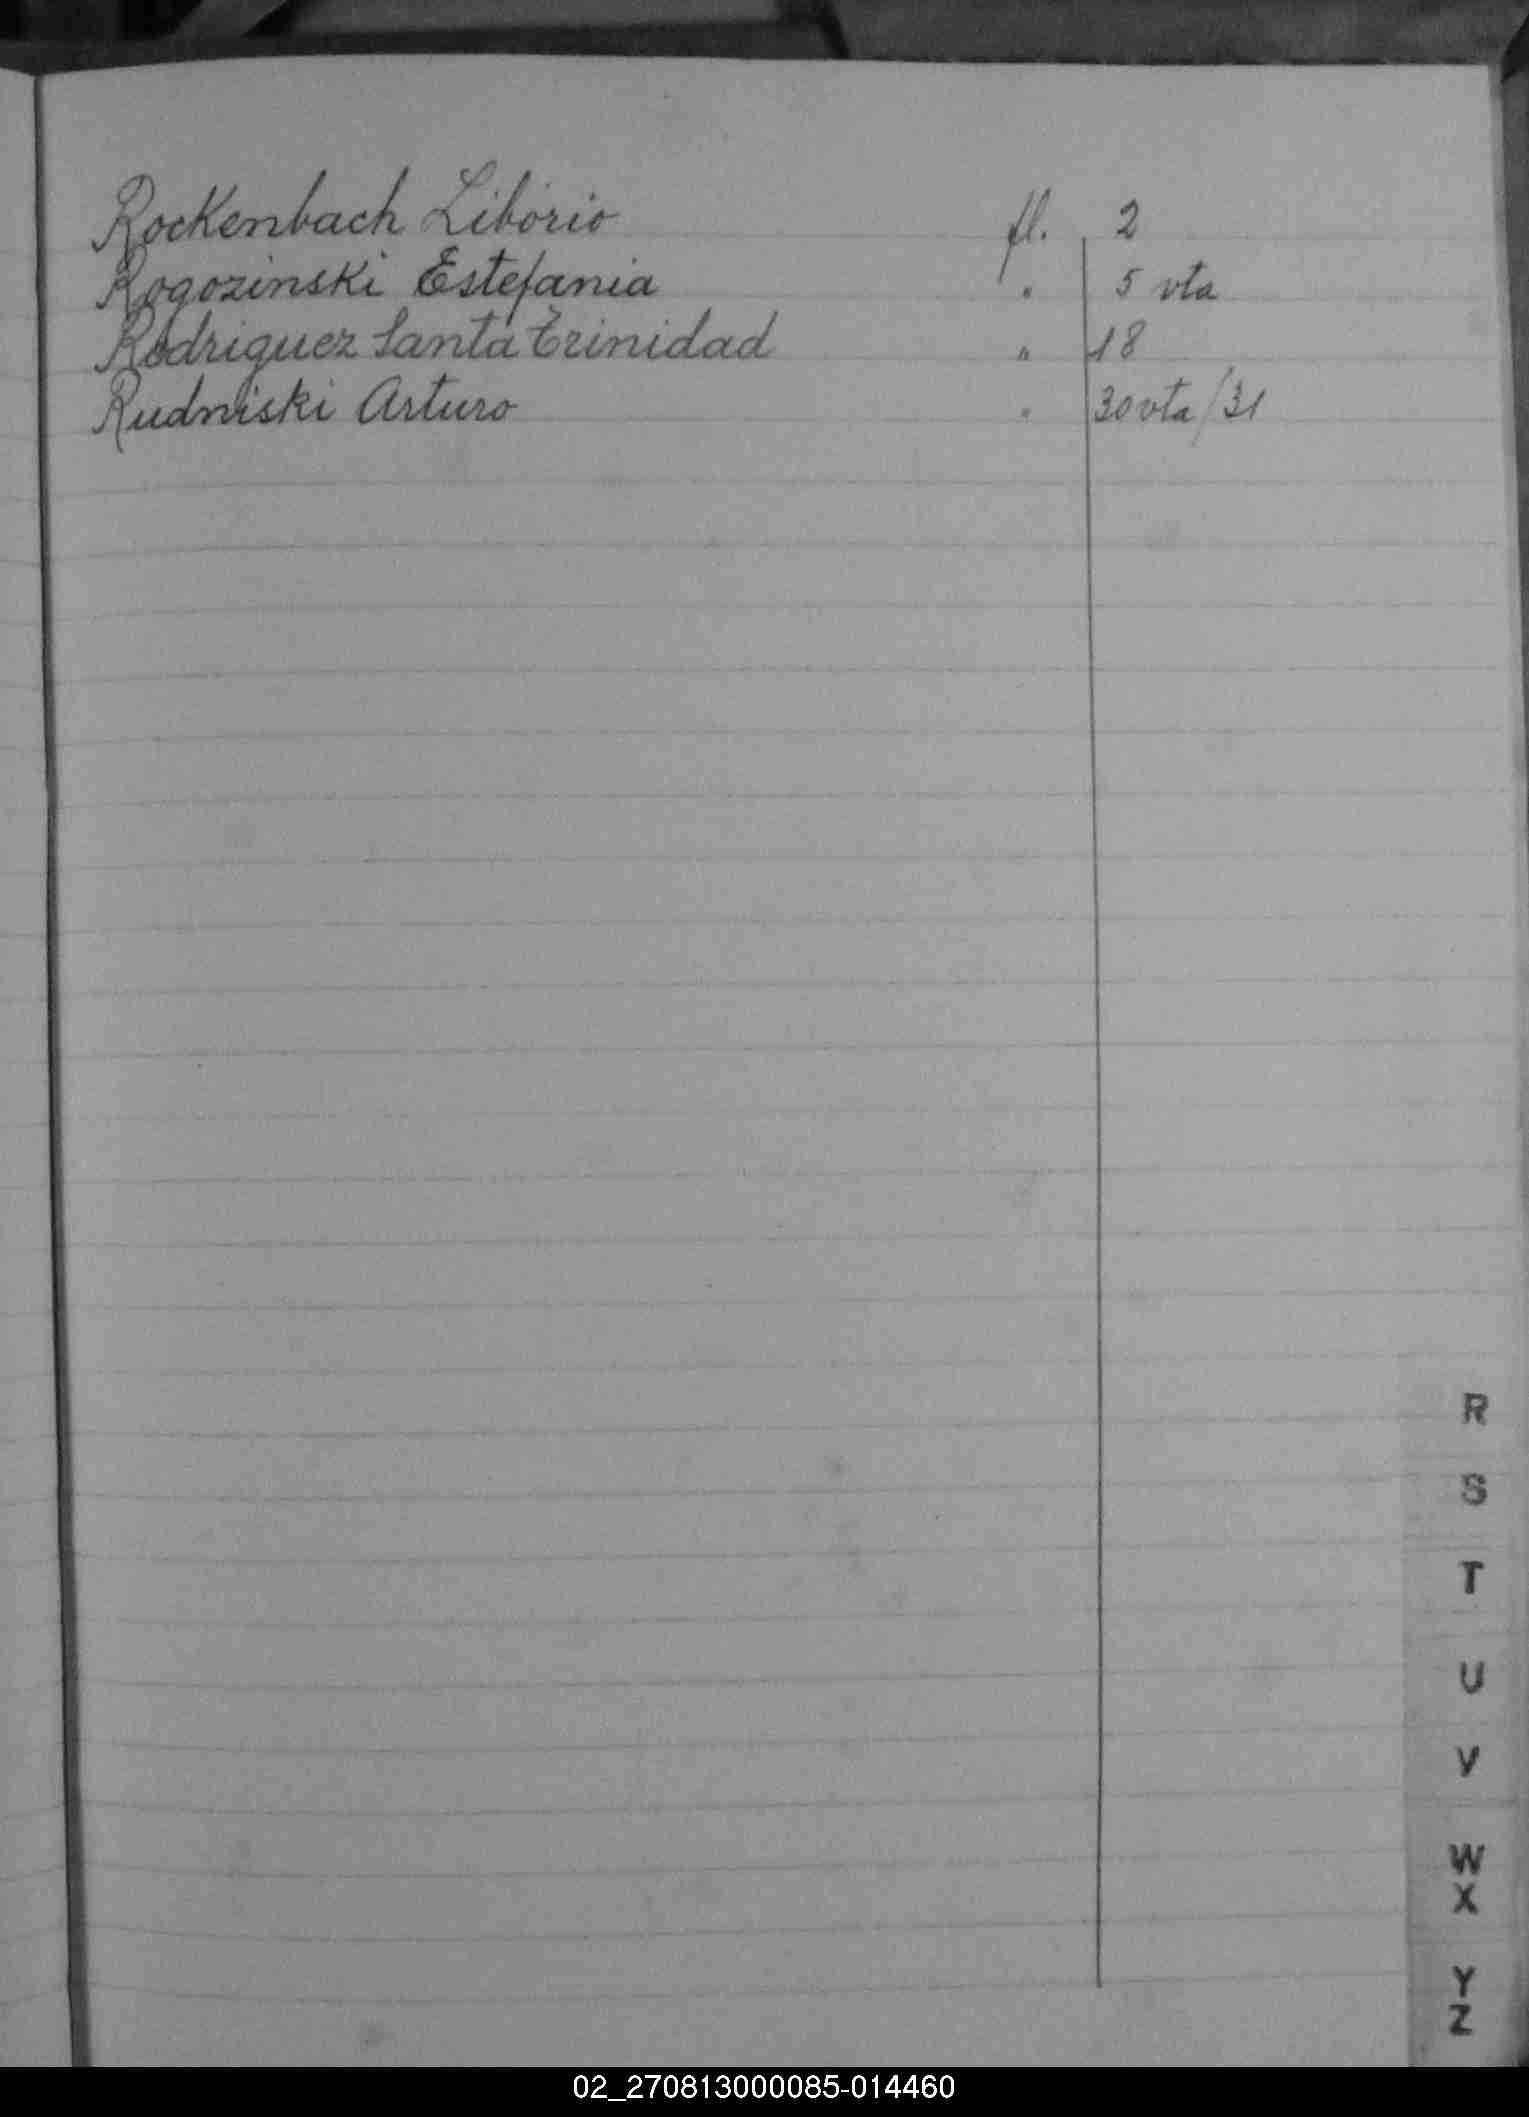 Rockenbach Liborio fl. 2
Rogozinski Estefania " 5 vta
Rodriguez Santa Trinidad " 18
Rudniski Arturo " 30 vta/31
R
S
T
U
V
W
X
Y
Z
02_270813000085-014460